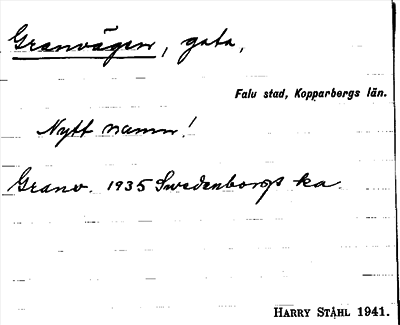 Granvägen, gata,
Falu stad, Kopparbergs län.
Nytt namn!
Granv. 1935 Swedenborgs ka.
HARRY STÅHL 1941.